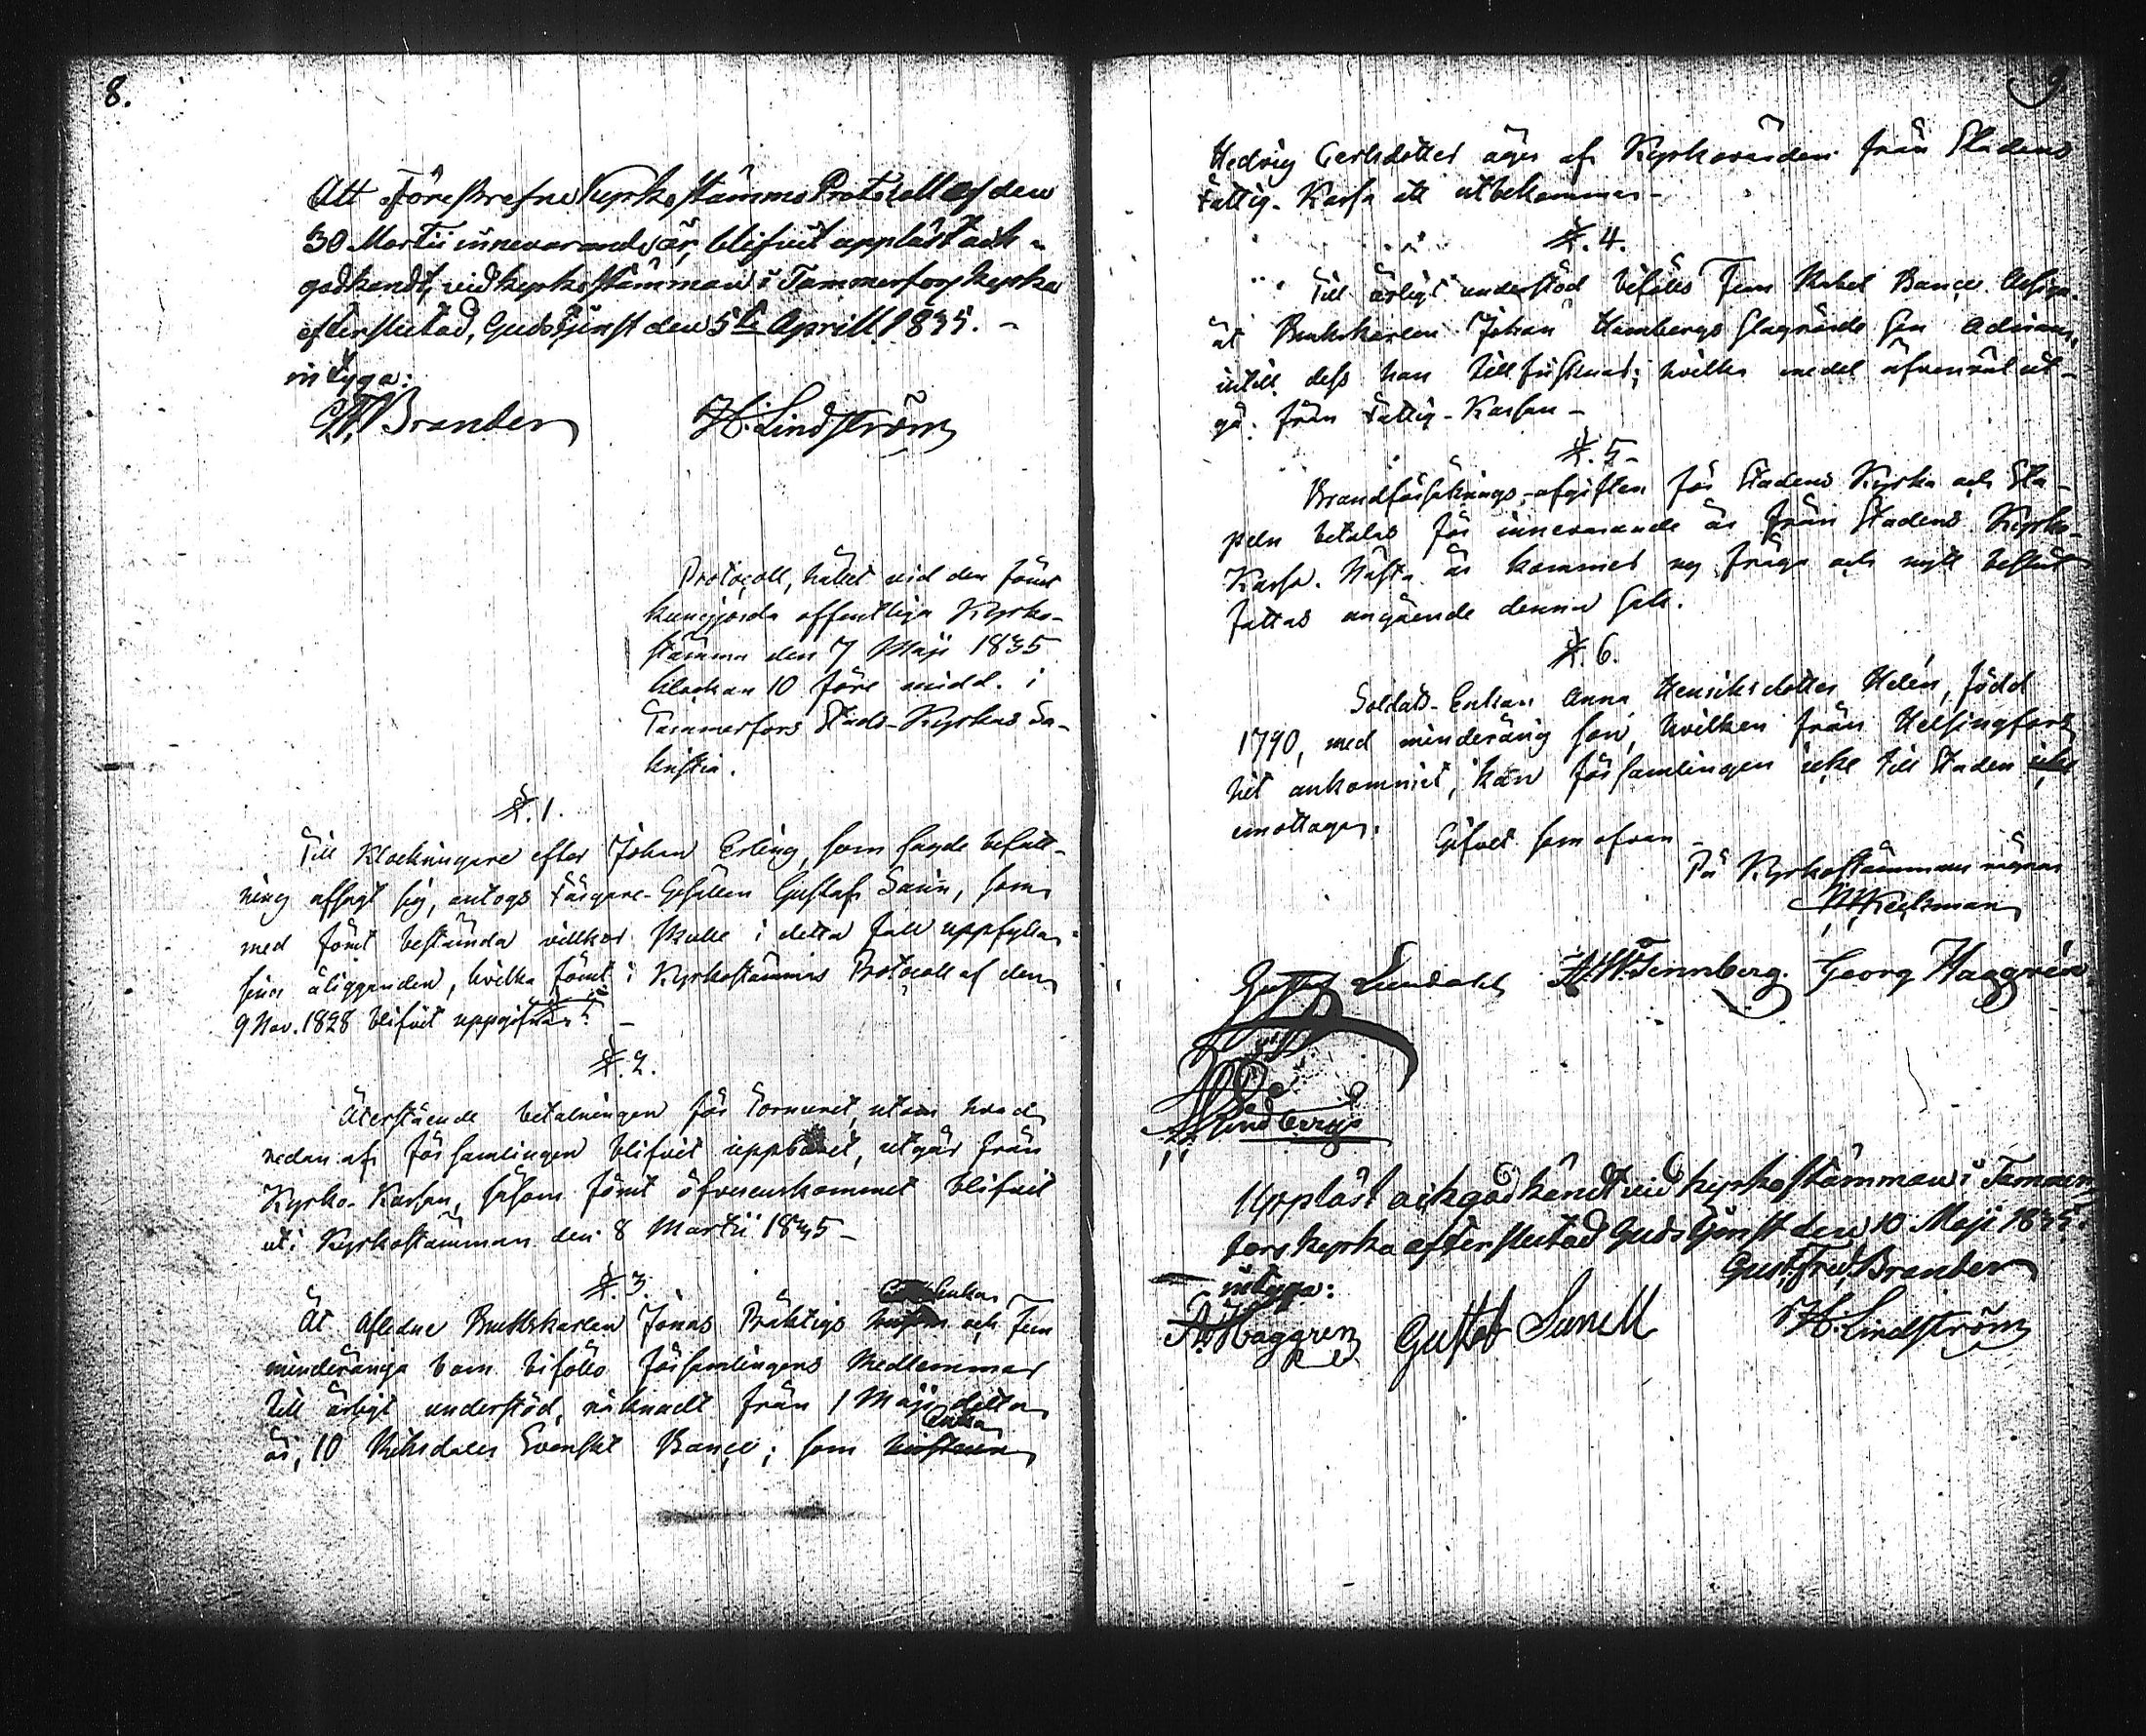 8.
Att Föreskrefne Kyrkostämmo Protocoll af den
30 Martii innevarande år, blifvit uppläst och
godkändt, vid kyrkostämman i Tammerfors kyrka
efter slutad Gudstjenst den 5te Aprill 1835. -
intyga:
Brander H. Lindström
Protocoll, hållet vid den förut
kungjorda offentliga Kyrko-
stämma den 7 Maji 1835
klockan 10 före midd. i
Tammerfors Stads-Kyrkas Sa-
kristia.
§. 1.
Till Klockringare efter Johan Erling, som sagde befatt-
ning afsagt sig, antogs Färgare-Gesällen Gustaf Sanin, som
med förut bestämda villkor skulle i detta fall uppfylla
sina åligganden, hvilka förut i Kyrkostämmo Protocoll af den
9 Nov. 1828 blifvit uppgifna. -
§. 2.
Återstående betalningen för Tornuret, utom hvad
redan af församlingen blifvit uppburet, utgår från
Kyrko-Kassan, såsom förut öfverenskommet blifvit
uti Kyrkostämman den 8 Martii 1835 -
§. 3.
Enka
Åt Aflidne Bruks karlen Jonas Präktigs och Fem
minderåriga barn biföllo församlingens Medlemmar
till årligt understöd, räknadt från 1 Maji detta
Enkan
år, 10 Riksdaler Svenskt Banco; som hustrun
9
Hedvig Carlsdotter äger af Kyrkovärden från Stadens
Fattig-Kassa att utbekomma -
§. 4.
Till årligt understöd bifölls Fem Rubel Banco Assign.
åt Brukskarlen Johan Hambergs slagrörde son Adrian,
intill dess han tillfrisknar; hvilka medel äfvenväl ut-
gå från Fattig-Kassan -
§. 5 -
Brandförsäkrings-afgiften för Stadens Kyrka och Sta-
peln betalas för innevarande år från Stadens Kyrko-
Kassa. Nästa år kommer ny fråga och nytt beslut
fattas angående denna sak.
§. 6.
Soldats-Enkan Anna Henriksdotter Helén, född
1790, med minderårig son, hvilken från Helsingfors
hit ankommit, kan församlingen icke till Staden icke
emottaga.
Gifvet som ofvan -
På Kyrkostämmans vägnar
Keckman
Gustaf Lundahl Tennberg. Georg Haggrén
Lindberg
Uppläst och godkändt vid kyrkostämman i Tammer-
fors kyrka efter slutad Gudstjenst den 10 Maji 1835.
intyga: Gust. Fred. Brander
Haggren Gustaf Sunell H. Lindström